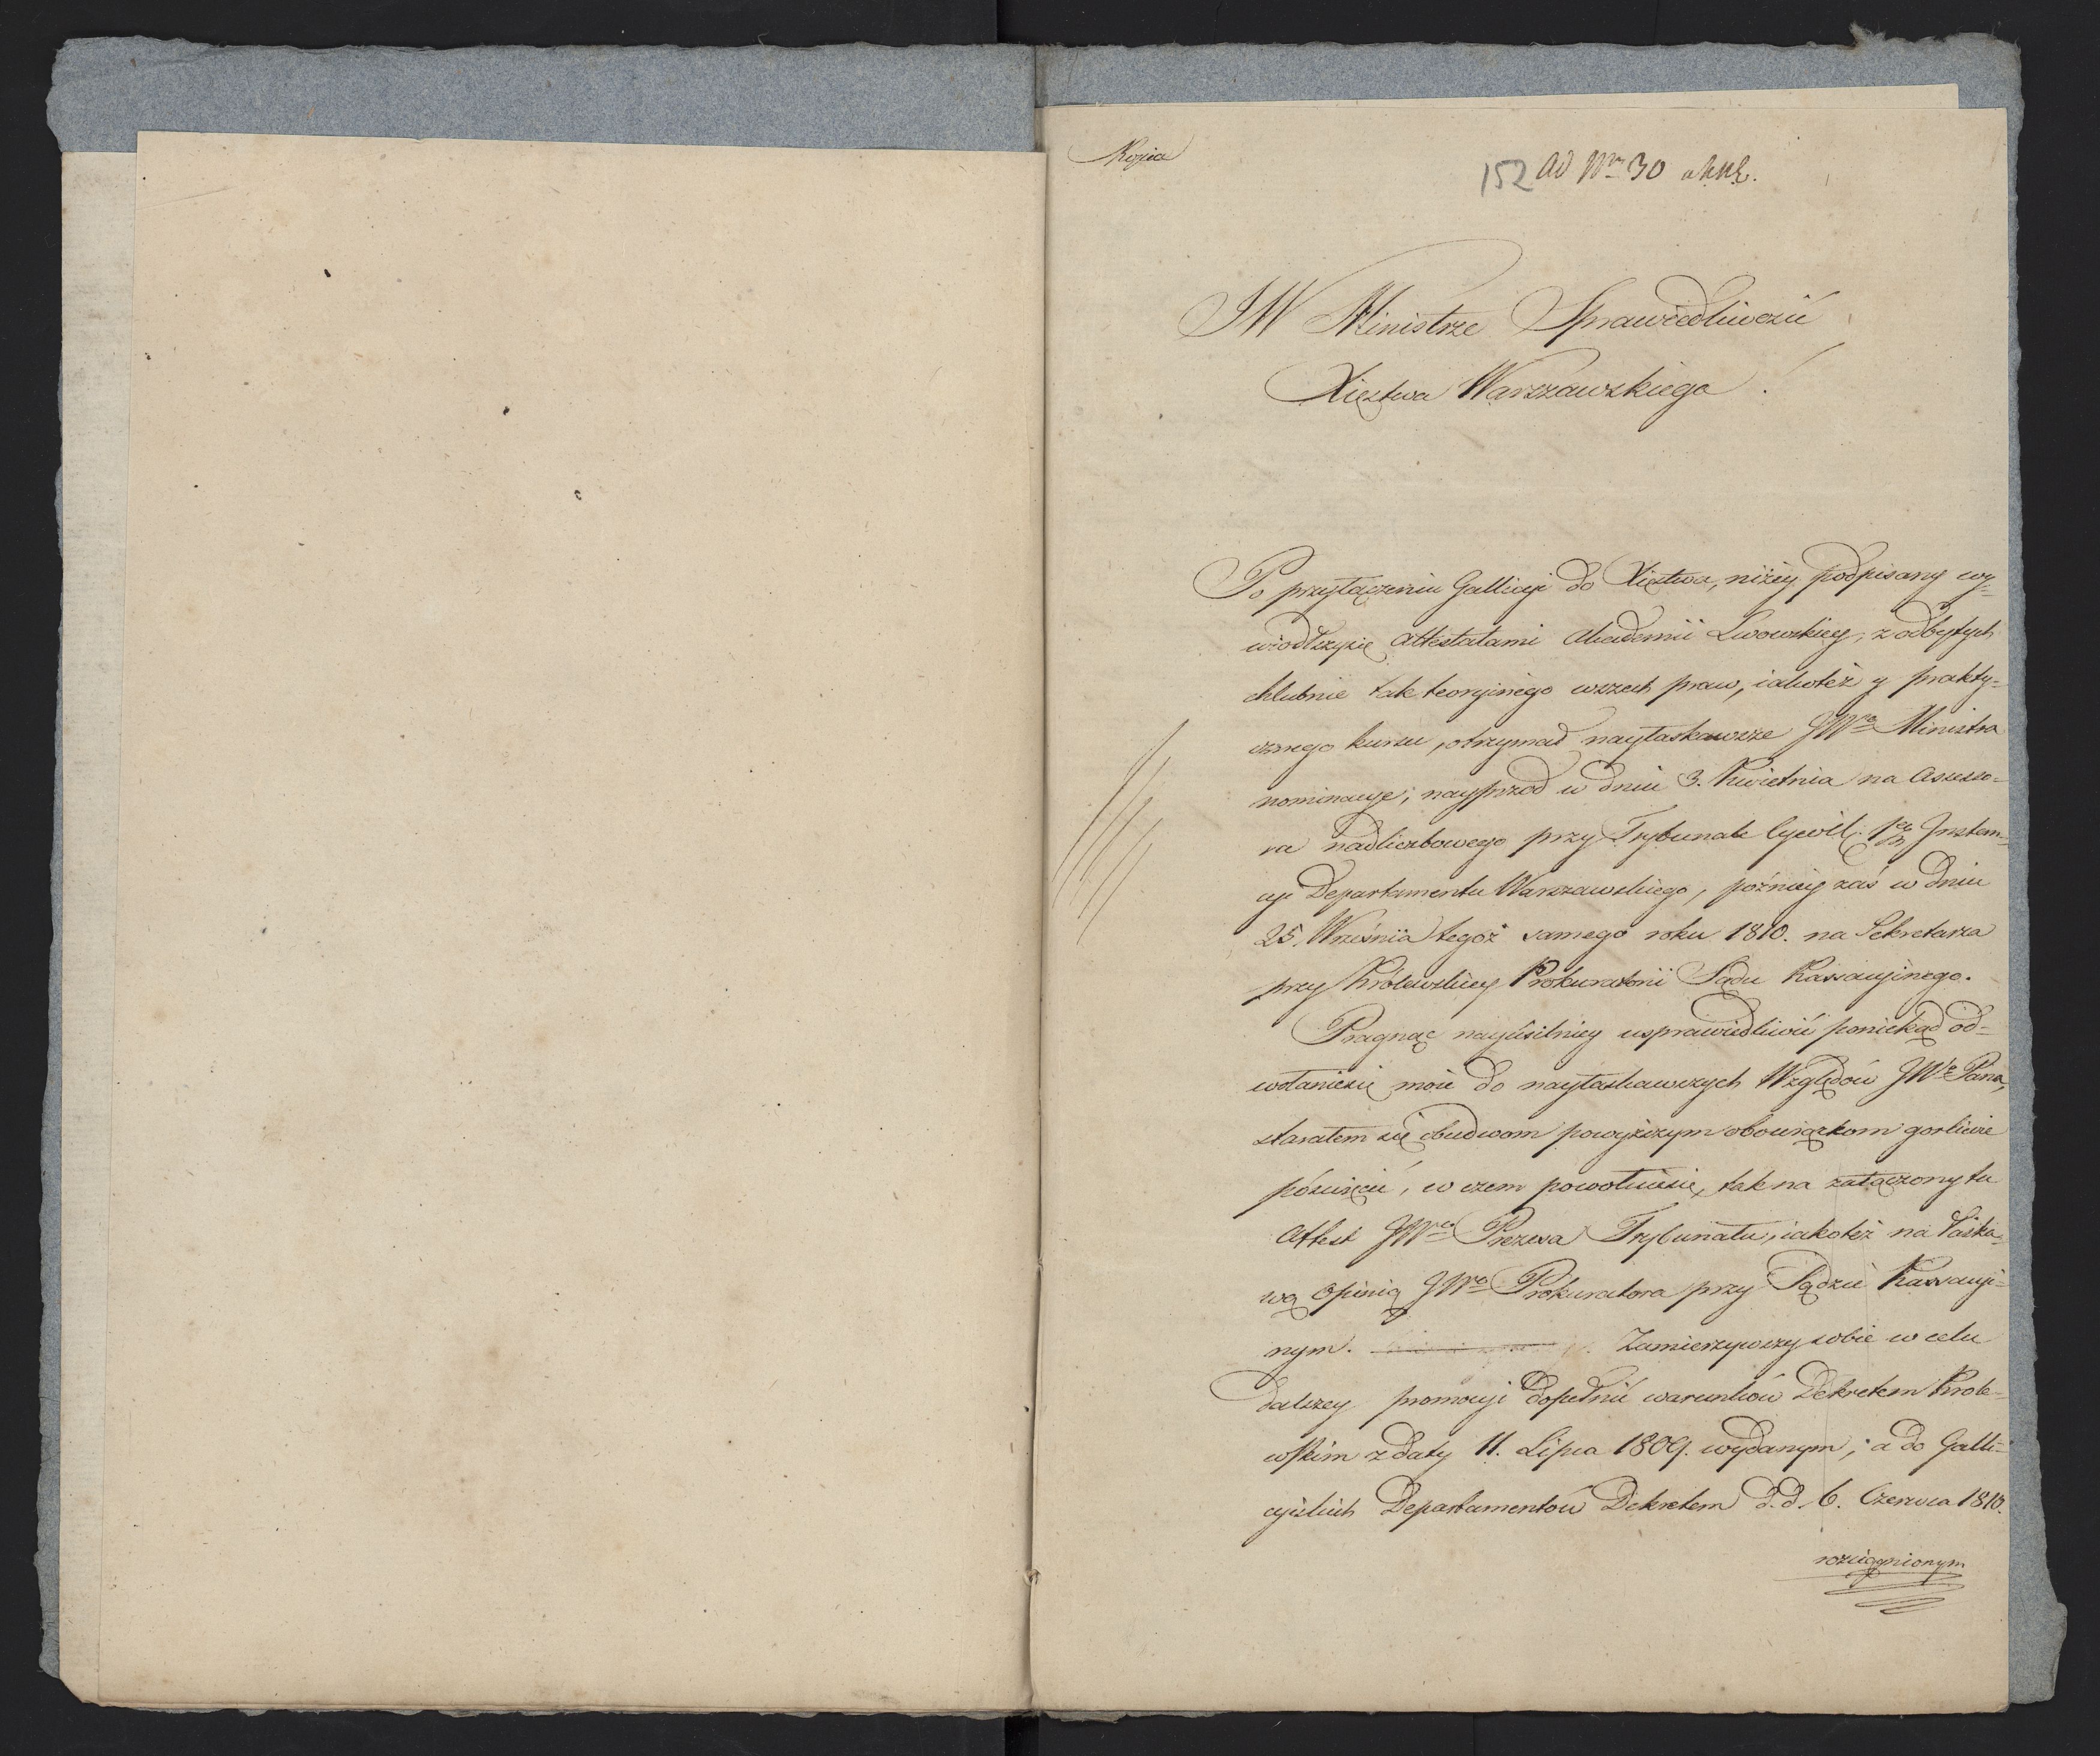 Kopia
152 ad Nrm 30
JW Ministrze Sprawiedliwości
Xięztwa Warszawskiego!
Po przyłączeniu Gallicyi do Xięztwa, niżey podpisany wy=
wiódłszysię attestatami Akademii Lwowskiey, z odbytych
chlubnie tak teoryjnego wszech praw, iakoteż y prakty=
cznego kursu, otrzymał nayłaskawsze JWgo Ministra
nominacye; nayprzod w dniu 3. Kwietnia na Assesso=
ra nadliczbowego przy Trybunale Cywil: 1ey Instan=
cyi Departamentu Warszawskiego, poźniey zaś w dniu
25. Września tegoż samego roku 1810. na Sekretarza
przy Królewskiey Prokuratorii Sądu Kassacyinego.
Pragnąc nayusilniey usprawiedliwić poniekąd od=
wołaniesię moie do nayłaskawszych Względów JWo Pana,
starałem się obudwom powyższym obowiązkom gorliwie
póświęcić, w czem powołuiesię, tak na załączony tu
attest JWgo Prezesa Trybunału, iakoteż na łaska=
wą opinią JWgo Prokuratora przy Sądzie Kassacyi=
nym. Zamierzywszy sobie w celu
dalszey promocyi dopełnić warunków Dekretem Krole=
wskim z daty 11. Lipca 1809. wydanym; a do Galli=
cyiskich Departamentów Dekretem d. d. 6. Czerwca 1810.
rozciągnionym